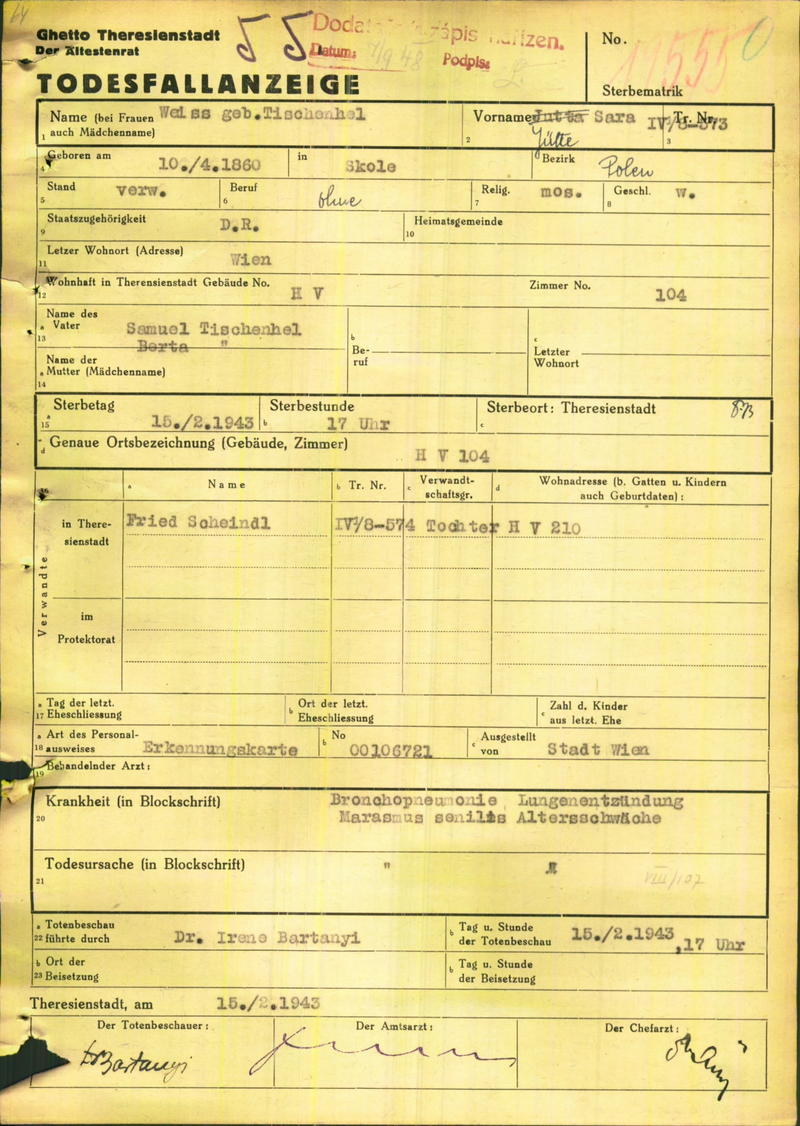 64
Ghetto Theresienstadt
Der Ältestenrat
55
Datum:
Podpis:
No.
Sterbematrik
TODESFALLANZEIGE
Name (bei Frauen auch Mädchenname) Weiss geb.Tischenhel
1
Vorname Jutta Sara
Jütte
2
Tr. Nr. IV/8-573
3
Geboren am 10./4.1860 in Skole
4
Bezirk Polen
Stand verw.
5
Beruf ohne
6
Relig. mos.
7
Geschl. w.
8
Staatszugehörigkeit D.R.
9
Heimatsgemeinde
10
Letzer Wohnort (Adresse) Wien
11
Wohnhaft in Theresienstadt Gebäude No. H V
12
Zimmer No. 104
Name des
a Vater Samuel Tischenhel
13
Berta "
Name der
a Mutter (Mädchenname)
14
b
Be-
ruf
c
Letzter
Wohnort
a Sterbetag 15./2.1943
15
b Sterbestunde 17 Uhr
c Sterbeort: Theresienstadt
d Genaue Ortsbezeichnung (Gebäude, Zimmer) H V 104
a Name
b Tr. Nr.
c Verwandt-
schaftsgr.
d Wohnadresse (b. Gatten u. Kindern
auch Geburtdaten):
Verwandte
in There-
sienstadt
Fried Scheindl IV/8-574 Tochter H V 210
im
Protektorat
a Tag der letzt.
17 Eheschliessung
b Ort der letzt.
Eheschliessung
c Zahl d. Kinder
aus letzt. Ehe
a Art des Personal-
18 ausweises Erkennungskarte
b No 00106721
c Ausgestellt
von Stadt Wien
Behandelnder Arzt:
19
Krankheit (in Blockschrift) Bronchopneumonie Lungenentzündung
20 Marasmus senilis Altersschwäche
Todesursache (in Blockschrift) " "
21
VIII/107
a Totenbeschau
22 führte durch Dr. Irene Bartanyi
b Tag u. Stunde
der Totenbeschau 15./2.1943,17 Uhr
b Ort der
23 Beisetzung
b Tag u. Stunde
der Beisetzung
Theresienstadt, am 15./2.1943
Der Totenbeschauer:
Der Amtsarzt:
Der Chefarzt:
Dr Bartanyi